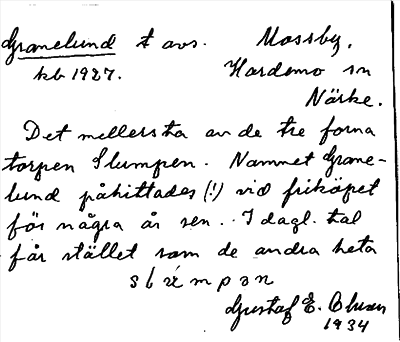 Granelund t avs. Mossby,
kb 1927. Hardemo sn
Närke.
Det mellersta av de tre forna
torpen Slumpen. Namnet Grane-
lund påhittades (!) vid friköpet
för några år sen. I dagl. tal
får stället som de andra heta
Gustaf E.
1934